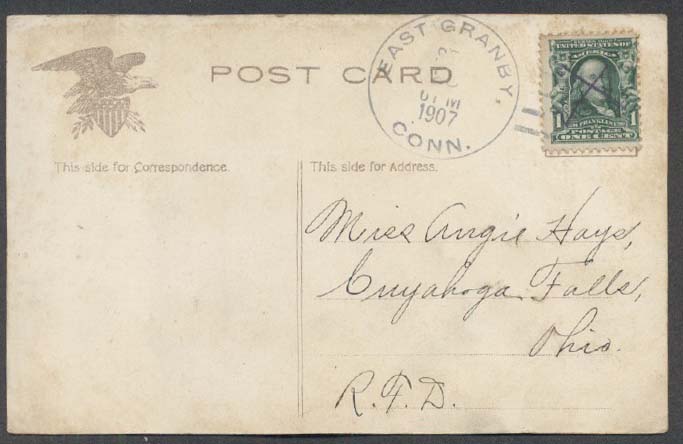 POST CARD
EAST GRANBY,
1907
CONN.
UNITED STATES OF
AMERICA
1 FRANKLIN 1
POSTAGE
ONE CENT
This side for Correspondence.
This side for Address.
Miss Angie Hays,
Cuyahoga Falls,
Ohio.
R.F.D.